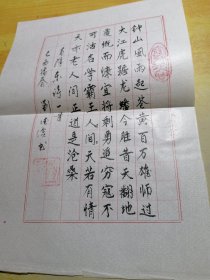 钟山風雨起蒼黄百万雄师过
大江虎踞龙盘今胜昔天翻地
覆慨而慷宜将剩勇追穷寇不
可沽名学霸王人间天若有情
天亦老人间正道是沧桑
毛泽东诗一首